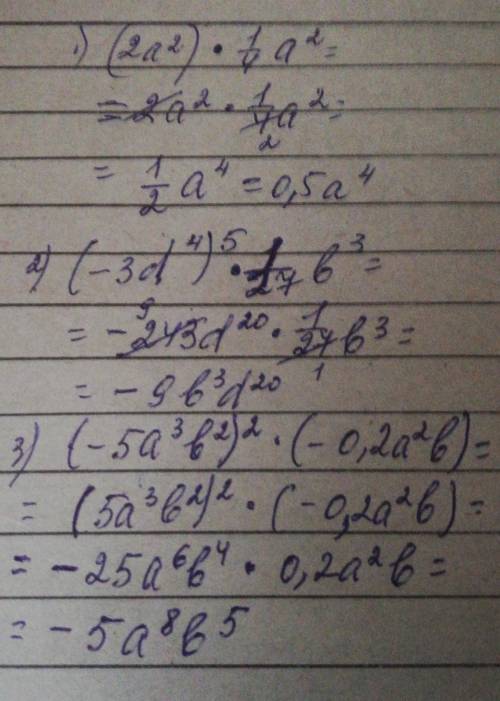 1) (2a²) · 1/4 a² =
= 2a² · 1/4 a² =
2
= 1/2 a⁴ = 0,5a⁴
2) (-3d⁴)⁵ · 1/27 b³ =
9
= -243d²⁰ · 1/27 b³ =
1
= -9b³d²⁰
3) (-5a³b²)² · (-0,2a²b) =
= (5a³b²)² · (-0,2a²b) =
= -25a⁶b⁴ · 0,2a²b =
= -5a⁸b⁵